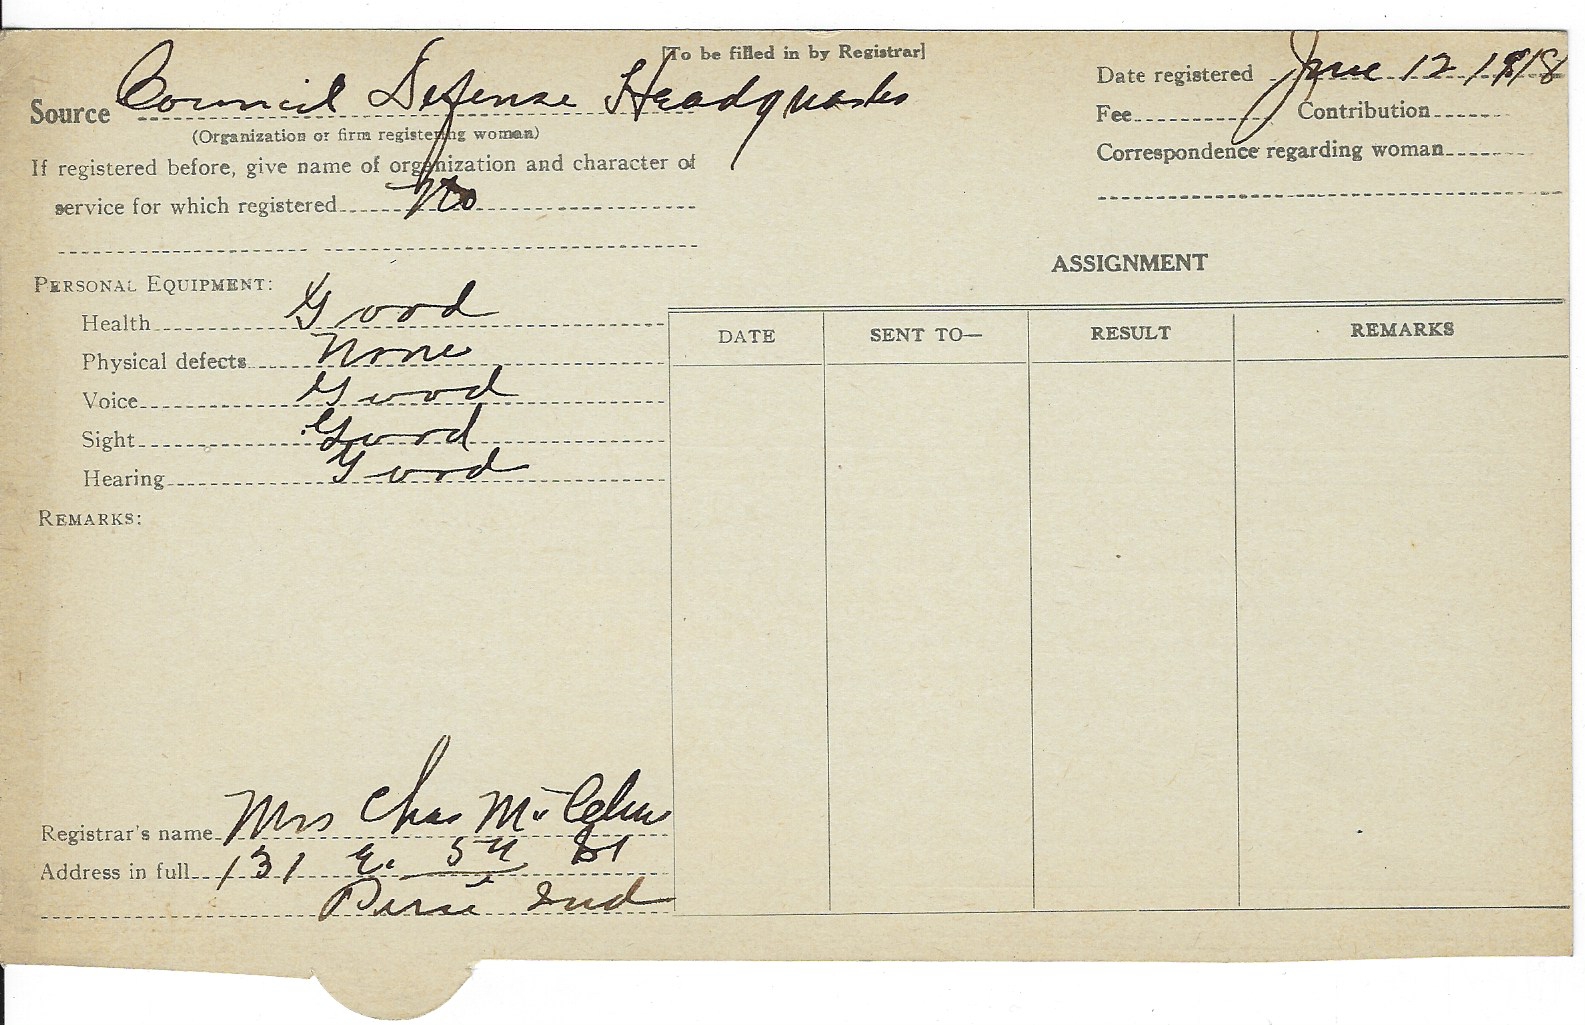 [To be filled in by Registrar]
Source Council Defense Headquarters
(Organization or firm registering woman)
If registered before, give name of organization and character of
service for which registered No
Date registered June 12 1918
Fee Contribution
Correspondence regarding woman
PERSONAL EQUIPMENT:
Health Good
Physical defects None
Voice Good
Sight Good
Hearing Good
REMARKS:
Registrar's name Mrs Chas
Address in full 131 E. 5th St
Peru Ind
ASSIGNMENT
DATE SENT TO— RESULT REMARKS